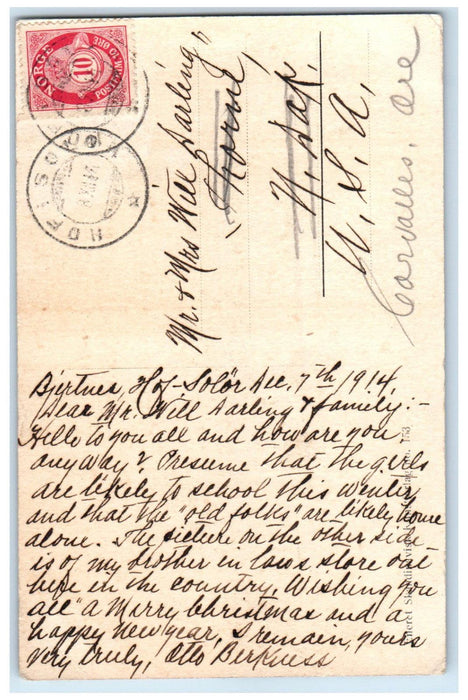 NORGE
10
POSTFRIM 10 ØRE
HOF I SOLØR
Mr. & Mrs Will Darling,
Thorne,
N. Dak.
U. S. A.
Corvalles, Ore
Bjertnes, Hof-Solör Dec. 7th 1914,
Dear Mr. Will Darling & family:-
Hello to you all and how are you
any way? Presume that the girls
are likely to school this winter
and that the "old folks" are likely home
alone. The picture on the other side
is of my brother in laws store out
here in the country. Wishing you
all "a Marry Christmas and a
happy New year, I remain, yours
very truly, Otto Berkness